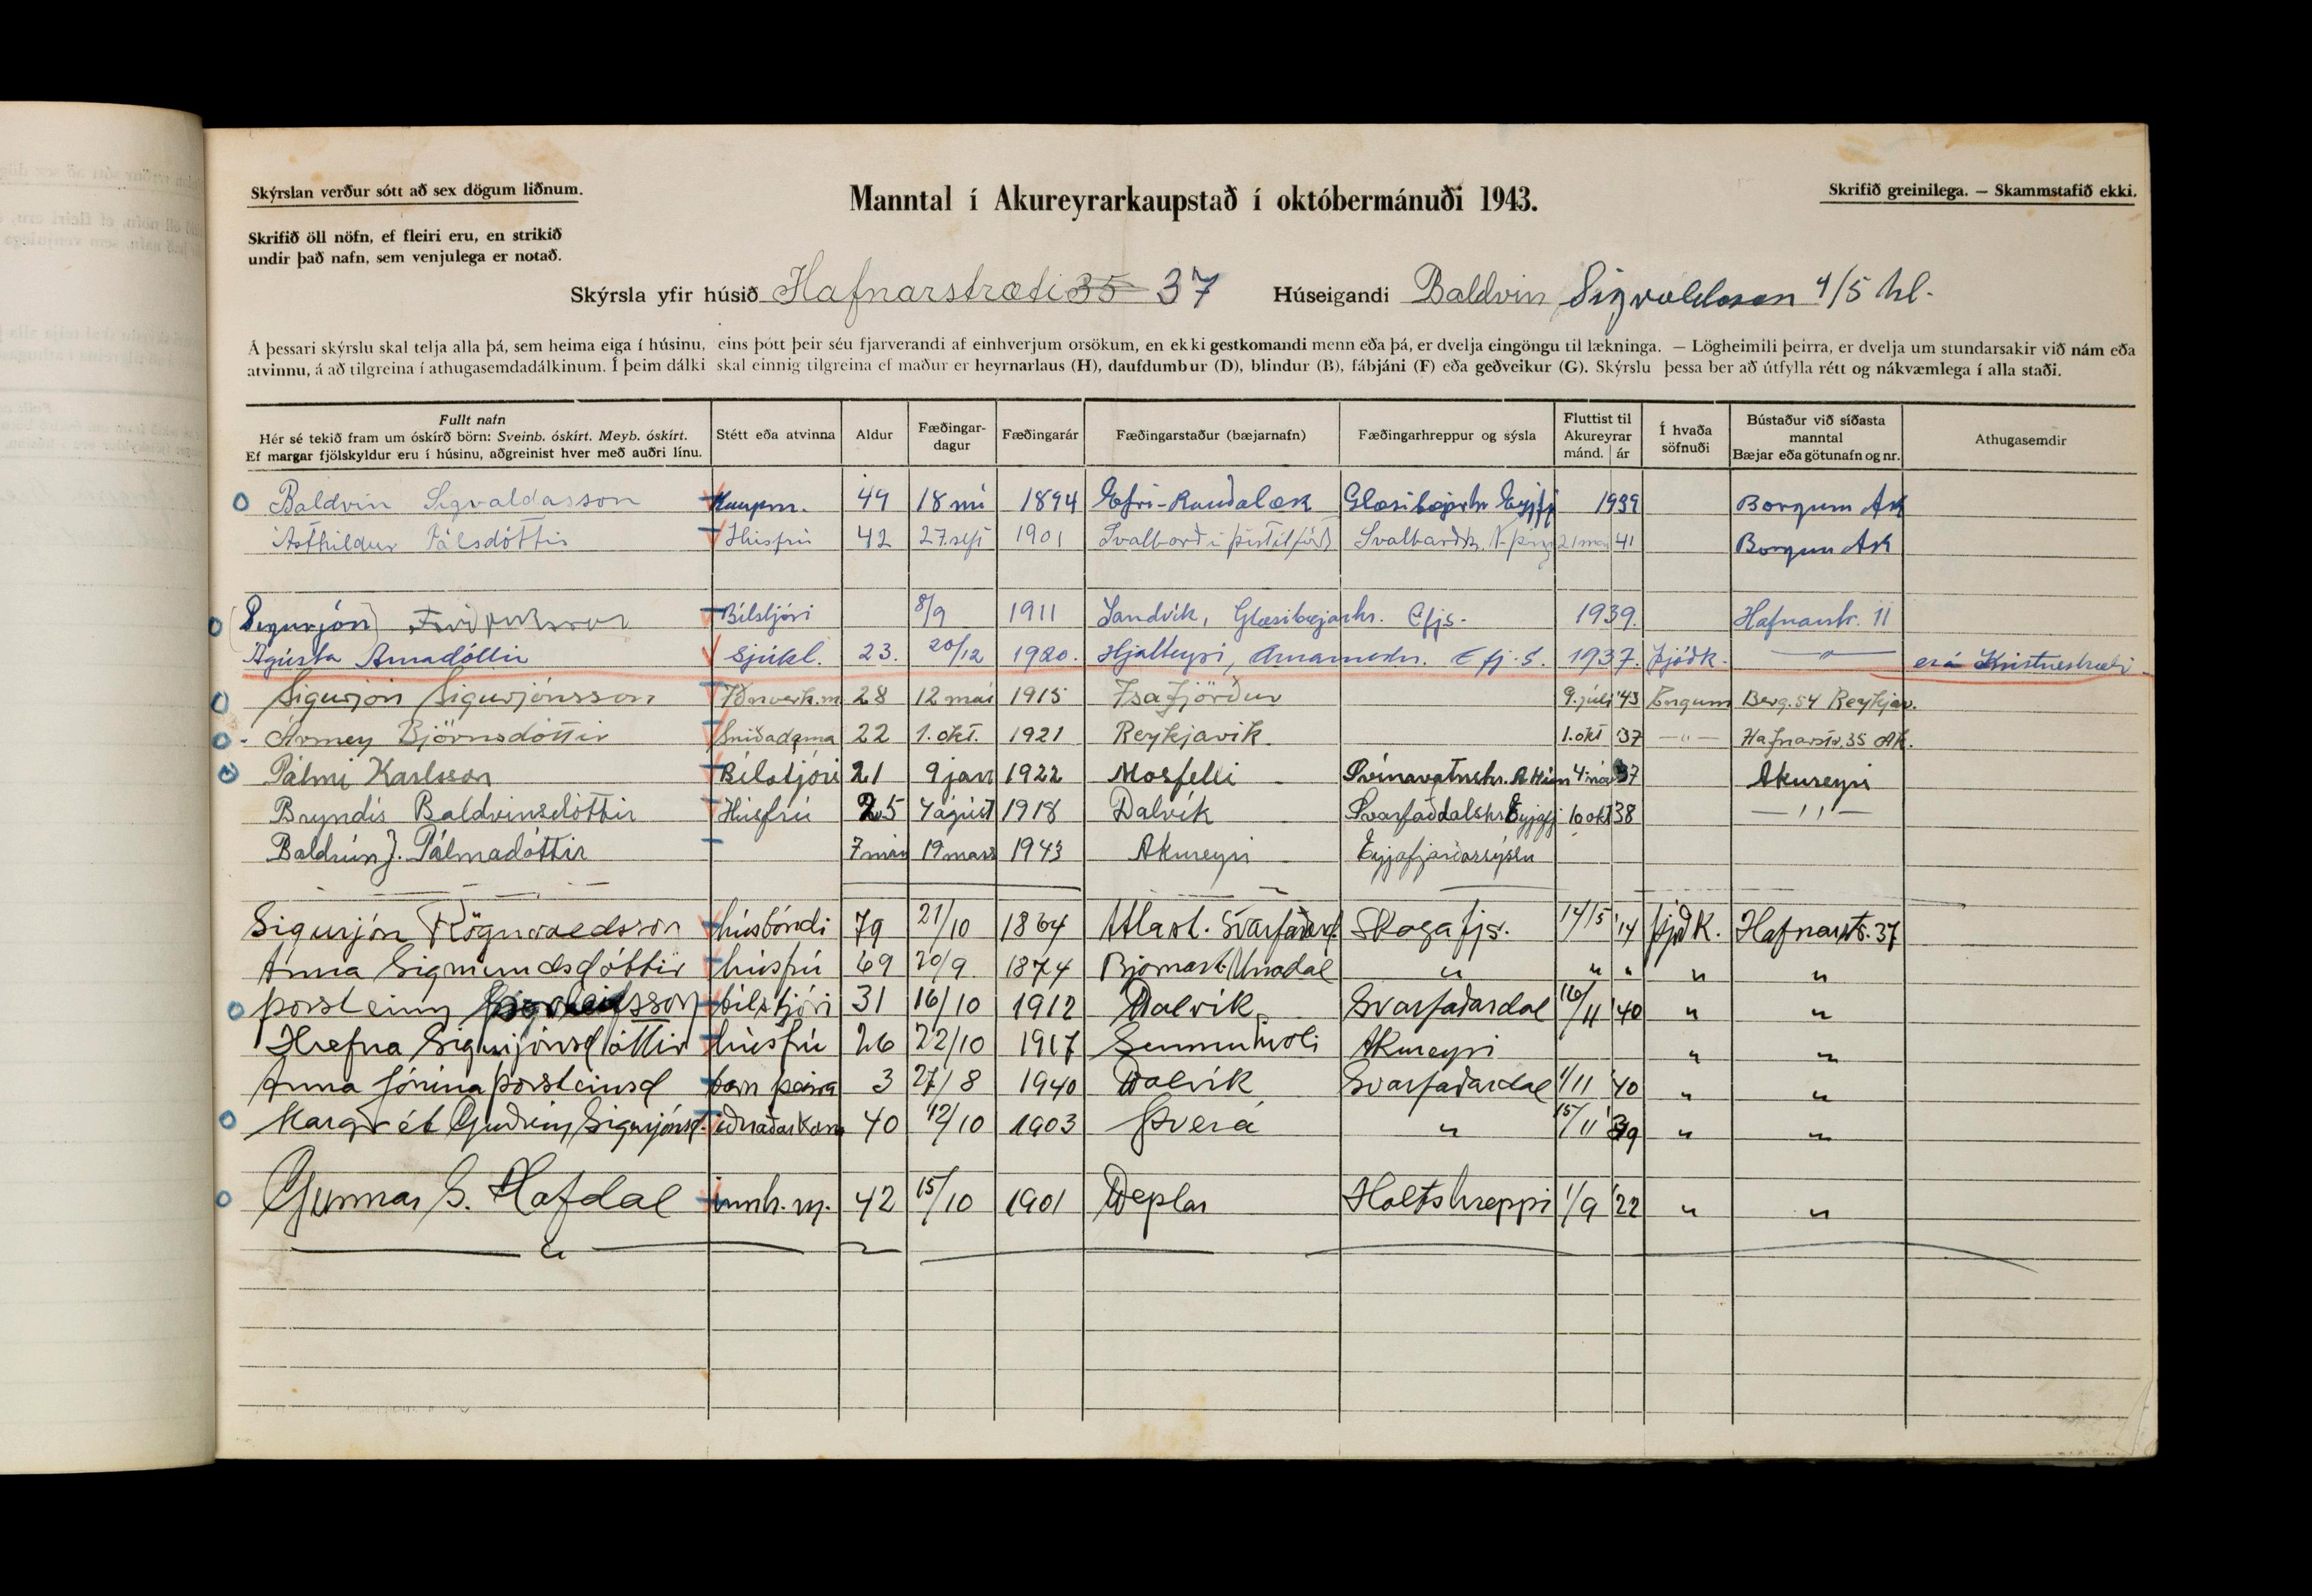 Skýrslan verður sótt að sex dögum liðnum.
Manntal í Akureyrarkaupstað í októbermánuði 1943.
Skrifið greinilega. — Skammstafið ekki.
Skrifið öll nöfn, ef fleiri eru, en strikið
undir það nafn, sem venjulega er notað.
Skýrsla yfir húsið Hafnarstræti 35 37 Húseigandi Baldvin Sigvaldason 4/5 hl.
Á þessari skýrslu skal telja alla þá, sem heima eiga í húsinu, eins þótt þeir séu fjarverandi af einhverjum orsökum, en ekki gestkomandi menn eða þá, er dvelja eingöngu til lækninga. — Lögheimili þeirra, er dvelja um stundarsakir við nám eða
atvinnu, á að tilgreina í athugasemdadálkinum. Í þeim dálki skal einnig tilgreina ef maður er heyrnarlaus (H), daufdumbur (D), blindur (B), fábjáni (F) eða geðveikur (G). Skýrslu þessa ber að útfylla rétt og nákvæmlega í alla staði.
Fullt nafn
Hér sé tekið fram um óskírð börn: Sveinb. óskírt. Meyb. óskírt.
Ef margar fjölskyldur eru í húsinu, aðgreinist hver með auðri línu.
Stétt eða atvinna
Aldur
Fæðingar-
dagur
Fæðingarár
Fæðingarstaður (bæjarnafn)
Fæðingarhreppur og sýsla
Fluttist til
Akureyrar
mánd. ár
Í hvaða
söfnuði
Bústaður við síðasta
manntal
Bæjar eða götunafn og nr.
Athugasemdir
Baldvin Sigvaldasson Kaupm. 49 18 1894 Efri-Rauðalæk Glæsibæjarhr Eyjfj 1939 Borgum Ak
Ásthildur Pálsdóttir Húsfrú 42 27. sept 1901 Svalbarð í þistilfirð Svalbarðh. N-þing 21 maí 41 Borgum Ak
(Sigurjón) Bílstjóri 8/9 1911 Sandvík, Glæsibæjarhr. Efjs. 1939. Hafnarstr. 11
Ágústa Árnadóttir Sjúkl. 23. 20/12 1920. Hjalteyri, Arnarneshr. Efj.s. 1937. þjóðk. — " — er á Kristneshæli.
Sigurjón Sigurjónsson Iðnverk.m 28 12 maí 1915 Ísafjörður 9. júlí '43 Engum Berg. 54 Reykjav.
Árney Björnsdóttir Sníðadama 22 1. okt. 1921 Reykjavík. 1. okt '37 — " — Hafnarstr. 35 Ak.
Pálmi Karlsson Bílstjóri 21 9 jan 1922 Mosfelli Svínavatnshr. A Hún 4 37 Akureyri
Bryndís Baldvinsdóttir Húsfrú 25 4 ágúst 1918 Dalvík Svarfaðdalshr Eyjafj 10 okt 38 — " —
Baldrún J. Pálmadóttir 7 mán 19 mars 1943 Akureyri Eyjafjarðarsýslu
Sigurjón Rögnvaldsson húsbóndi 79 21/10 1864 Atlast. Svarfaðard. Skagafjs. 14/5 '14 þjóðk. Hafnarstr. 37
Anna Sigmundsdóttir húsfrú 69 20/9 1874 Bjarnast. Unadal " " " " "
þorsteinn bílstjóri 31 16/10 1912 Dalvík Svarfaðardal 16/11 '40 " "
Hrefna Sigurjónsdóttir húsfrú 26 22/10 1917 Sunnuhvoli Akureyri " "
Anna Jónína þorsteinsd barn þeirra 3 27/8 1940 Dalvík Svarfaðardal 1/11 '40 " "
Margrét Guðrún Sigurjónsd. iðnaðarkona 40 12/10 1903 Þverá " 15/11 '39 " "
Gunnar S. Hafdal innh.m. 42 15/10 1901 Deplar Holtshreppi 1/9 '22 " "